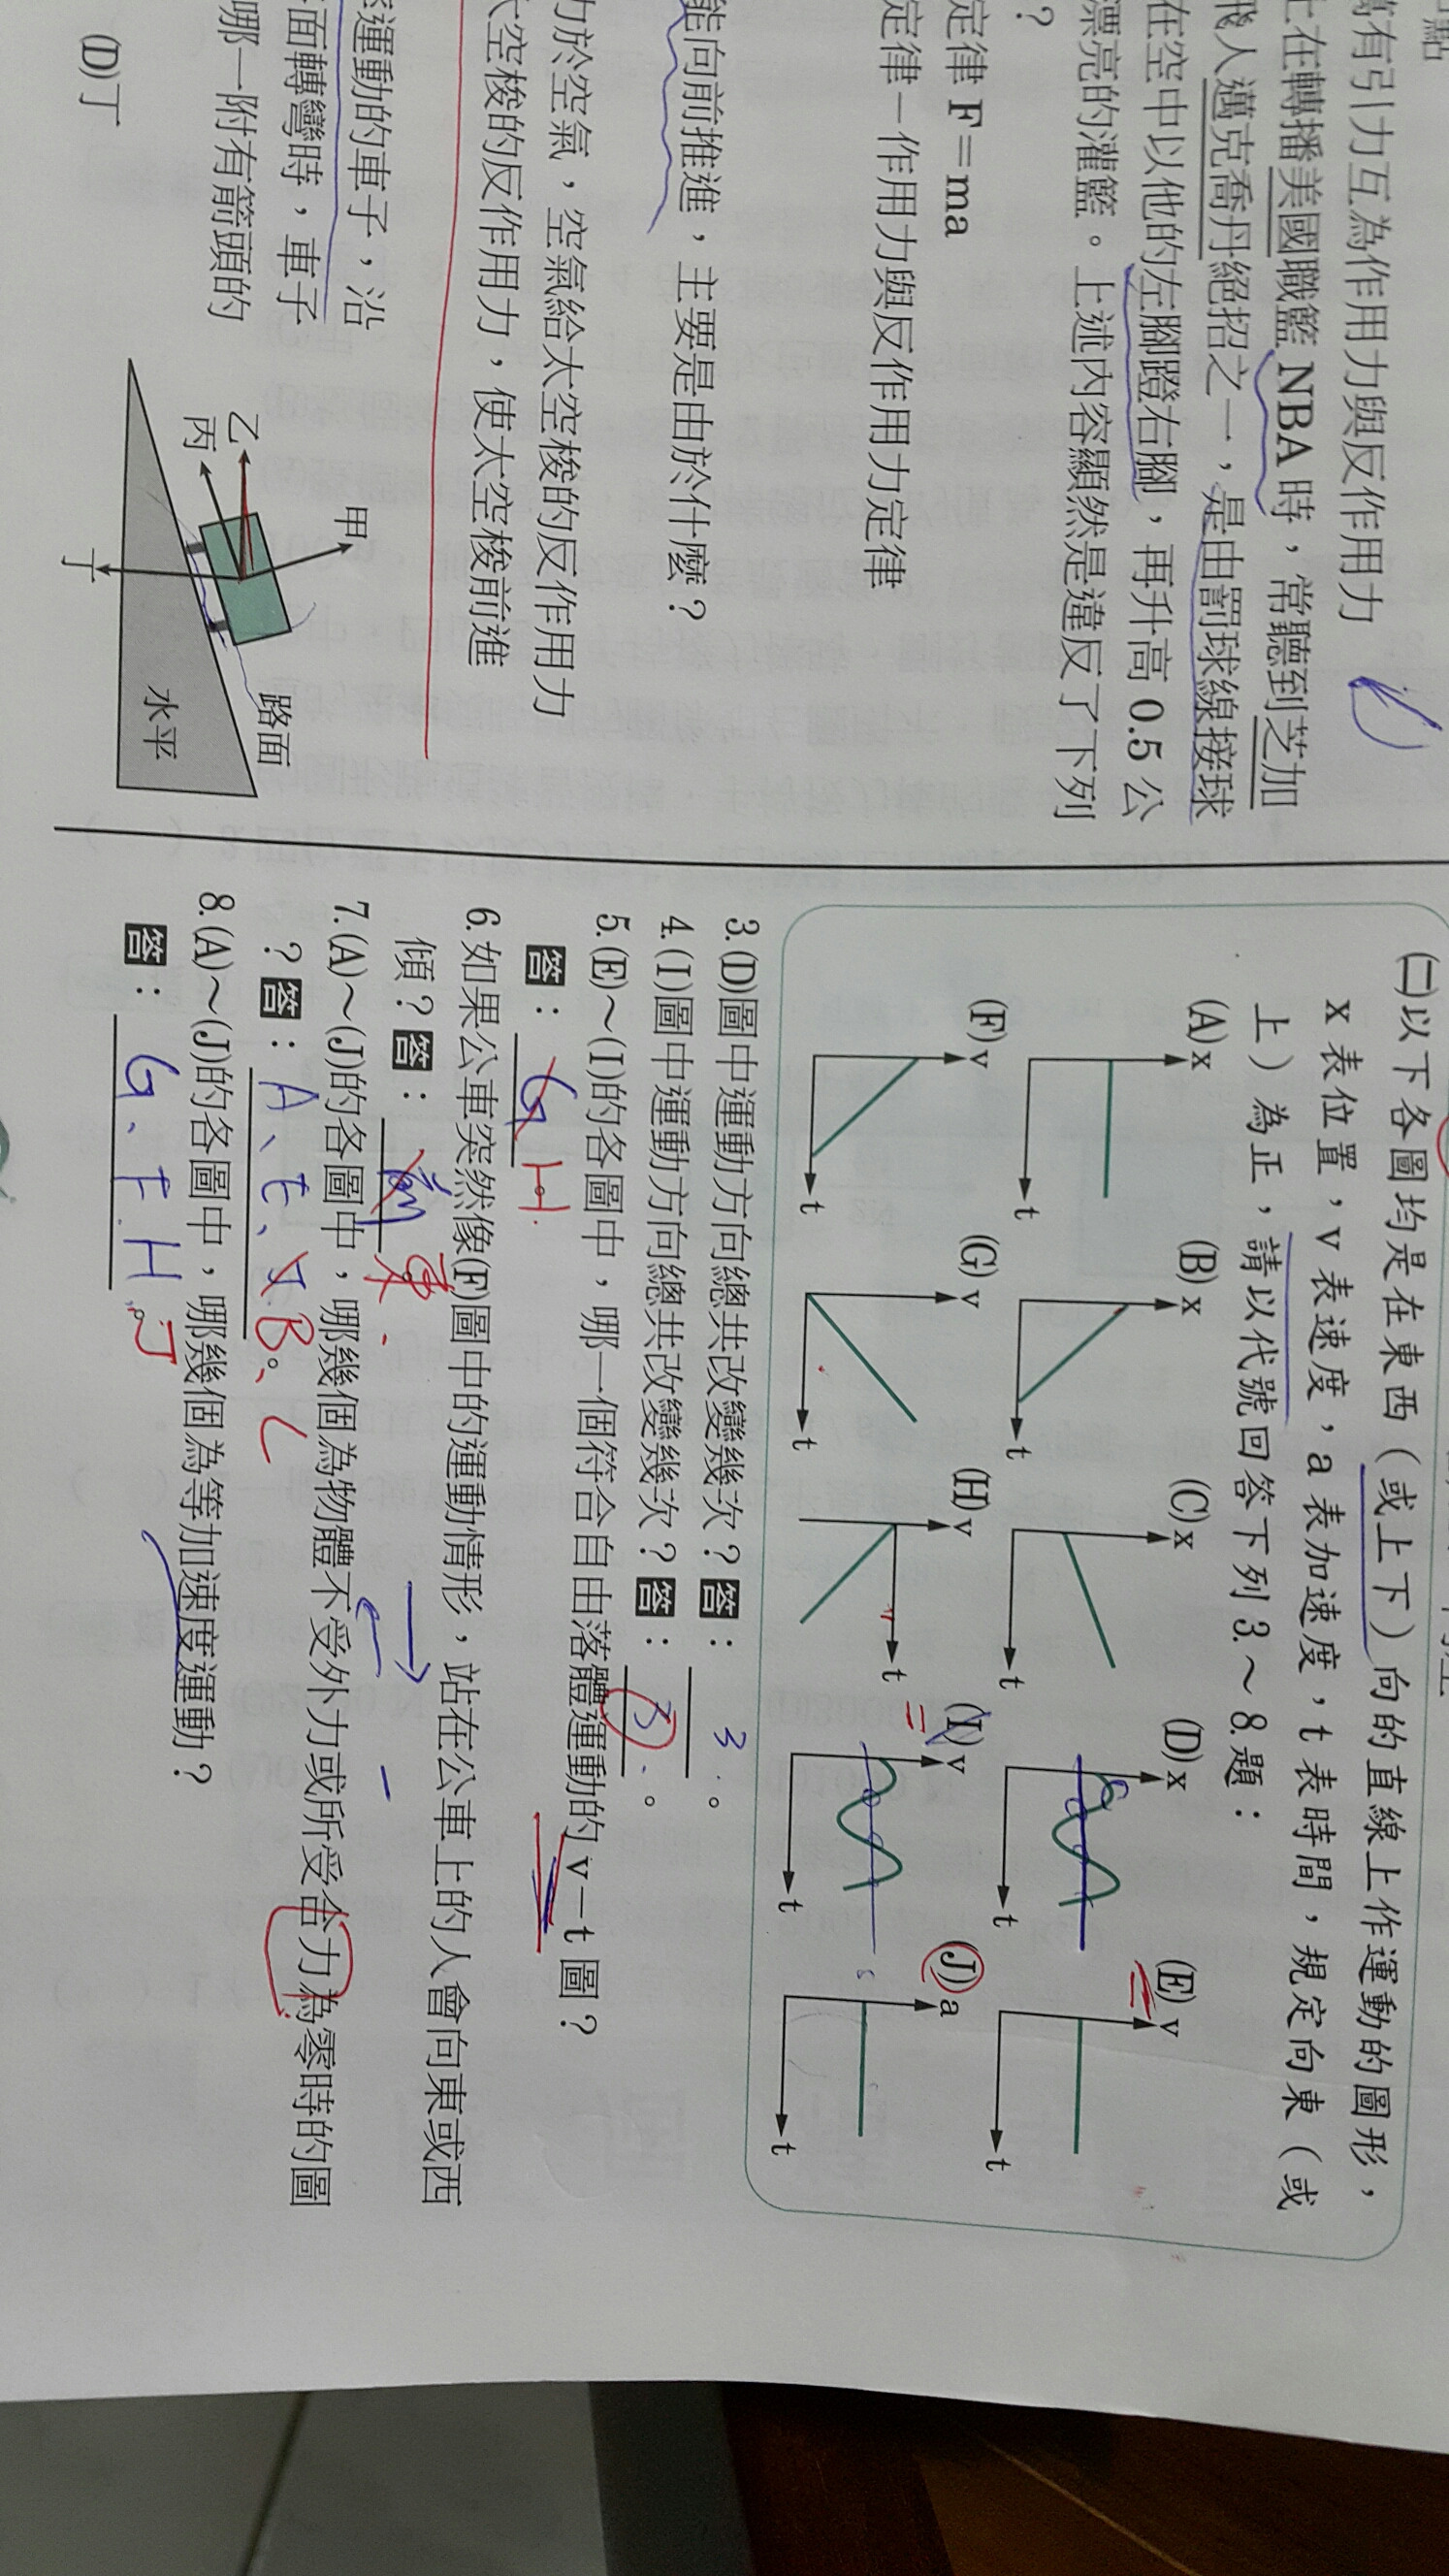 點
萬有引力互為作用力與反作用力
上在轉播美國職籃 NBA 時，常聽到芝加
飛人邁克喬丹絕招之一，是由罰球線接球
在空中以他的左腳蹬右腳，再升高 0.5 公
漂亮的灌籃。上述內容顯然是違反了下列
？
定律 F＝ma
定律－作用力與反作用力定律
能向前推進，主要是由於什麼？
力於空氣，空氣給太空梭的反作用力
太空梭的反作用力，使太空梭前進
運動的車子，沿
面轉彎時，車子
哪一附有箭頭的
(D)丁
甲
乙
丙
丁
路面
水平
㈡以下各圖均是在東西（或上下）向的直線上作運動的圖形，
x 表位置，v 表速度，a 表加速度，t 表時間，規定向東（或
上）為正，請以代號回答下列 3.～8.題：
(A) x t (B) x t (C) x t (D) x t (E) v t
(F) v t (G) v t (H) v t (I) v t (J) a t
3.(D)圖中運動方向總共改變幾次？答：3。
4.(I)圖中運動方向總共改變幾次？答：3。
5.(E)～(I)的各圖中，哪一個符合自由落體運動的 v－t 圖？
答：G H。
6.如果公車突然像(F)圖中的運動情形，站在公車上的人會向東或西
傾？答：東。
7.(A)～(J)的各圖中，哪幾個為物體不受外力或所受合力為零時的圖
？答：A、E、B。、C
8.(A)～(J)的各圖中，哪幾個為等加速度運動？
答：G、F、H。J